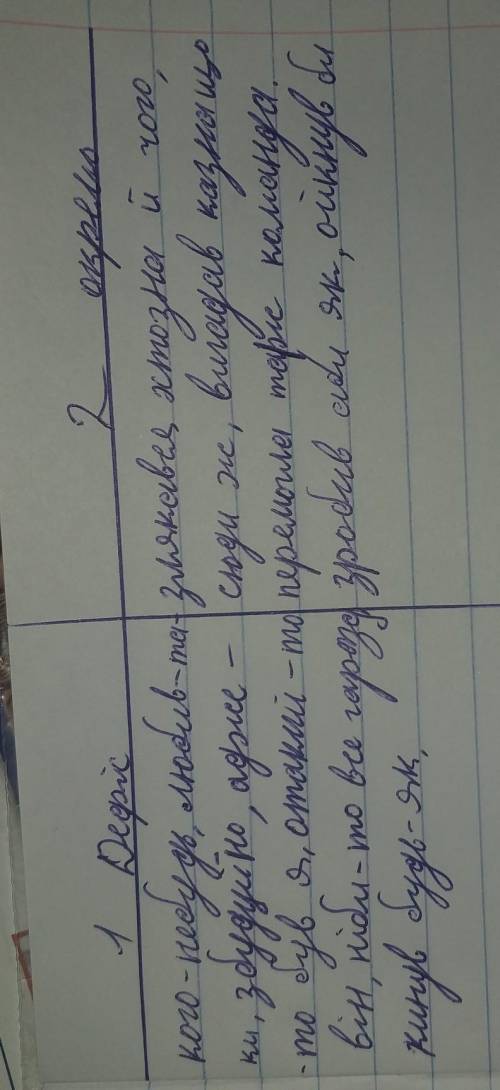 1 Дефіс
кого-небудь, любив-та-
ки, збудуй-но, адже-
-то був я, отакий-то
він, ніби-то все гаразд
кинув будь-як,
2 окремо
злякався хтозна й чого,
сюди ж, вигадав казна що
перемогла таж команда.
зробив аби як, ойкнув би